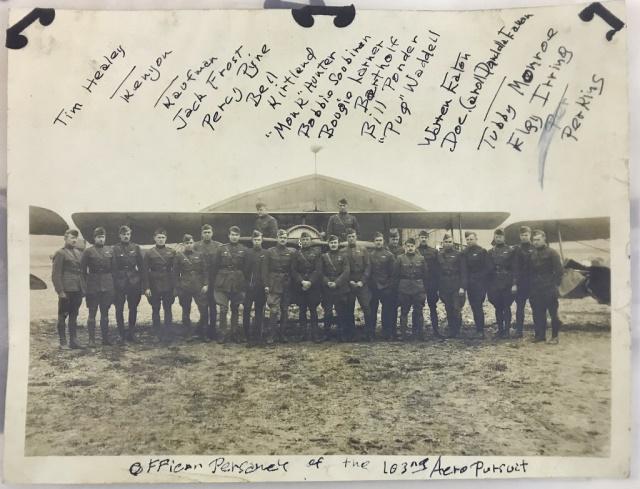 Tim Healey
Kenyon
Kaufman
Jack Frost
Percy Pyne
Beil
Kirtland
"Monk" Hunter
Bobbie Soubiran
Bougie Larner
Bertholf
Bill Ponder
"Pug" Waddell
Warren Eaton
Doc. Carol Eaton
Tubby Monroe
Elgy Irving
Per
Perkins
Officer Personel of the 103nd Aero Pursuit